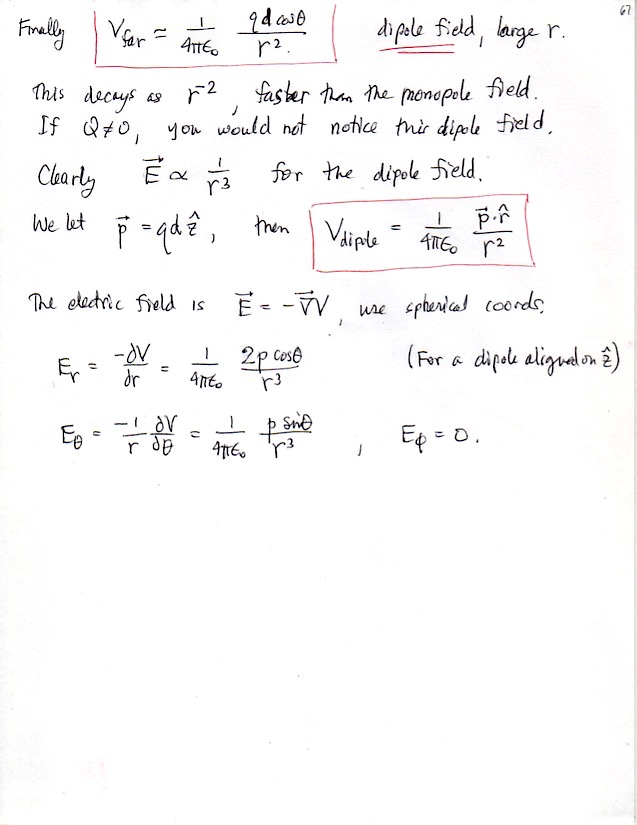 67
Finally V_far ≃ 1/4πϵ₀ qd cosθ/r². dipole field, large r.
This decays as r⁻², faster than the monopole field.
If Q≠0, you would not notice this dipole field.
Clearly E⃗ ∝ 1/r³ for the dipole field.
We let p⃗ = qd ẑ, then V_dipole = 1/4πϵ₀ p⃗·r̂/r²
The electric field is E⃗ = -∇⃗V, use spherical coords.
E_r = -∂V/∂r = 1/4πϵ₀ 2p cosθ/r³ (For a dipole aligned on ẑ)
E_θ = -1/r ∂V/∂θ = 1/4πϵ₀ p sinθ/r³ , E_ϕ = 0.